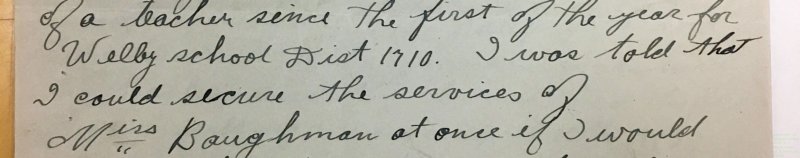 of a teacher since the first of the year for
Welby school Dist 1710. I was told that
I could secure the services of
Miss Baughman at once if I would